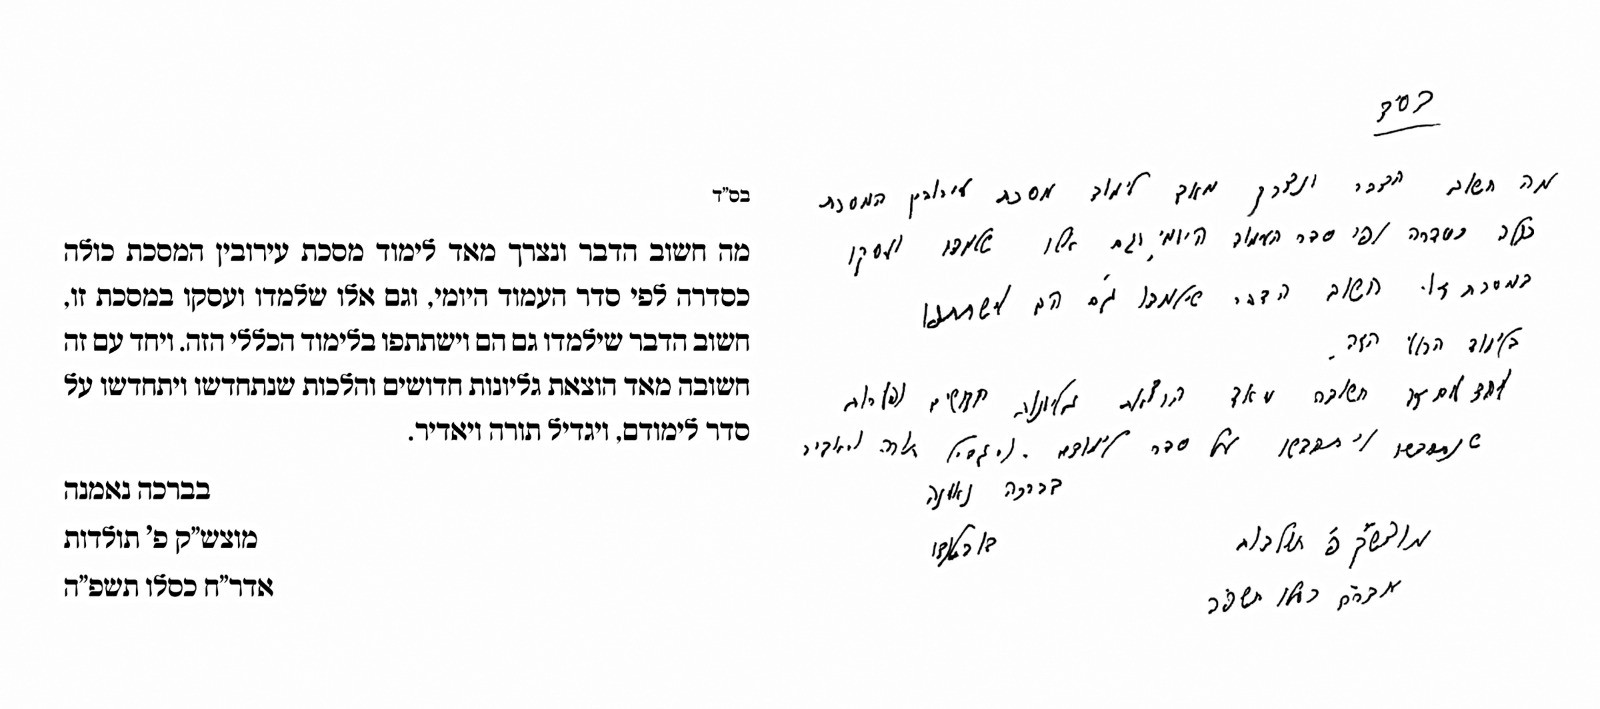 בס״ד
מה חשוב הדבר ונצרך מאד לימוד מסכת עירובין המסכת
כולה כסדרה לפי סדר העמוד היומי, וגם אלו שלמדו ועסקו
במסכת זו, חשוב הדבר שילמדו ג״כ הם וישתתפו
בלימוד הכללי הזה.
ויחד עם זה חשובה מאד הוצאת גליונות חדושים והלכות
שנתחדשו ויתחדשו על סדר לימודם. ויגדיל תורה ויאדיר
בברכה נאמנה
מוצש״ק פ׳ תולדות
אדר״ח כסלו תשפ״ה
בס״ד
מה חשוב הדבר ונצרך מאד לימוד מסכת עירובין המסכת כולה
כסדרה לפי סדר העמוד היומי, וגם אלו שלמדו ועסקו במסכת זו,
חשוב הדבר שילמדו גם הם וישתתפו בלימוד הכללי הזה. ויחד עם זה
חשובה מאד הוצאת גליונות חדושים והלכות שנתחדשו ויתחדשו על
סדר לימודם, ויגדיל תורה ויאדיר.
בברכה נאמנה
מוצש״ק פ׳ תולדות
אדר״ח כסלו תשפ״ה